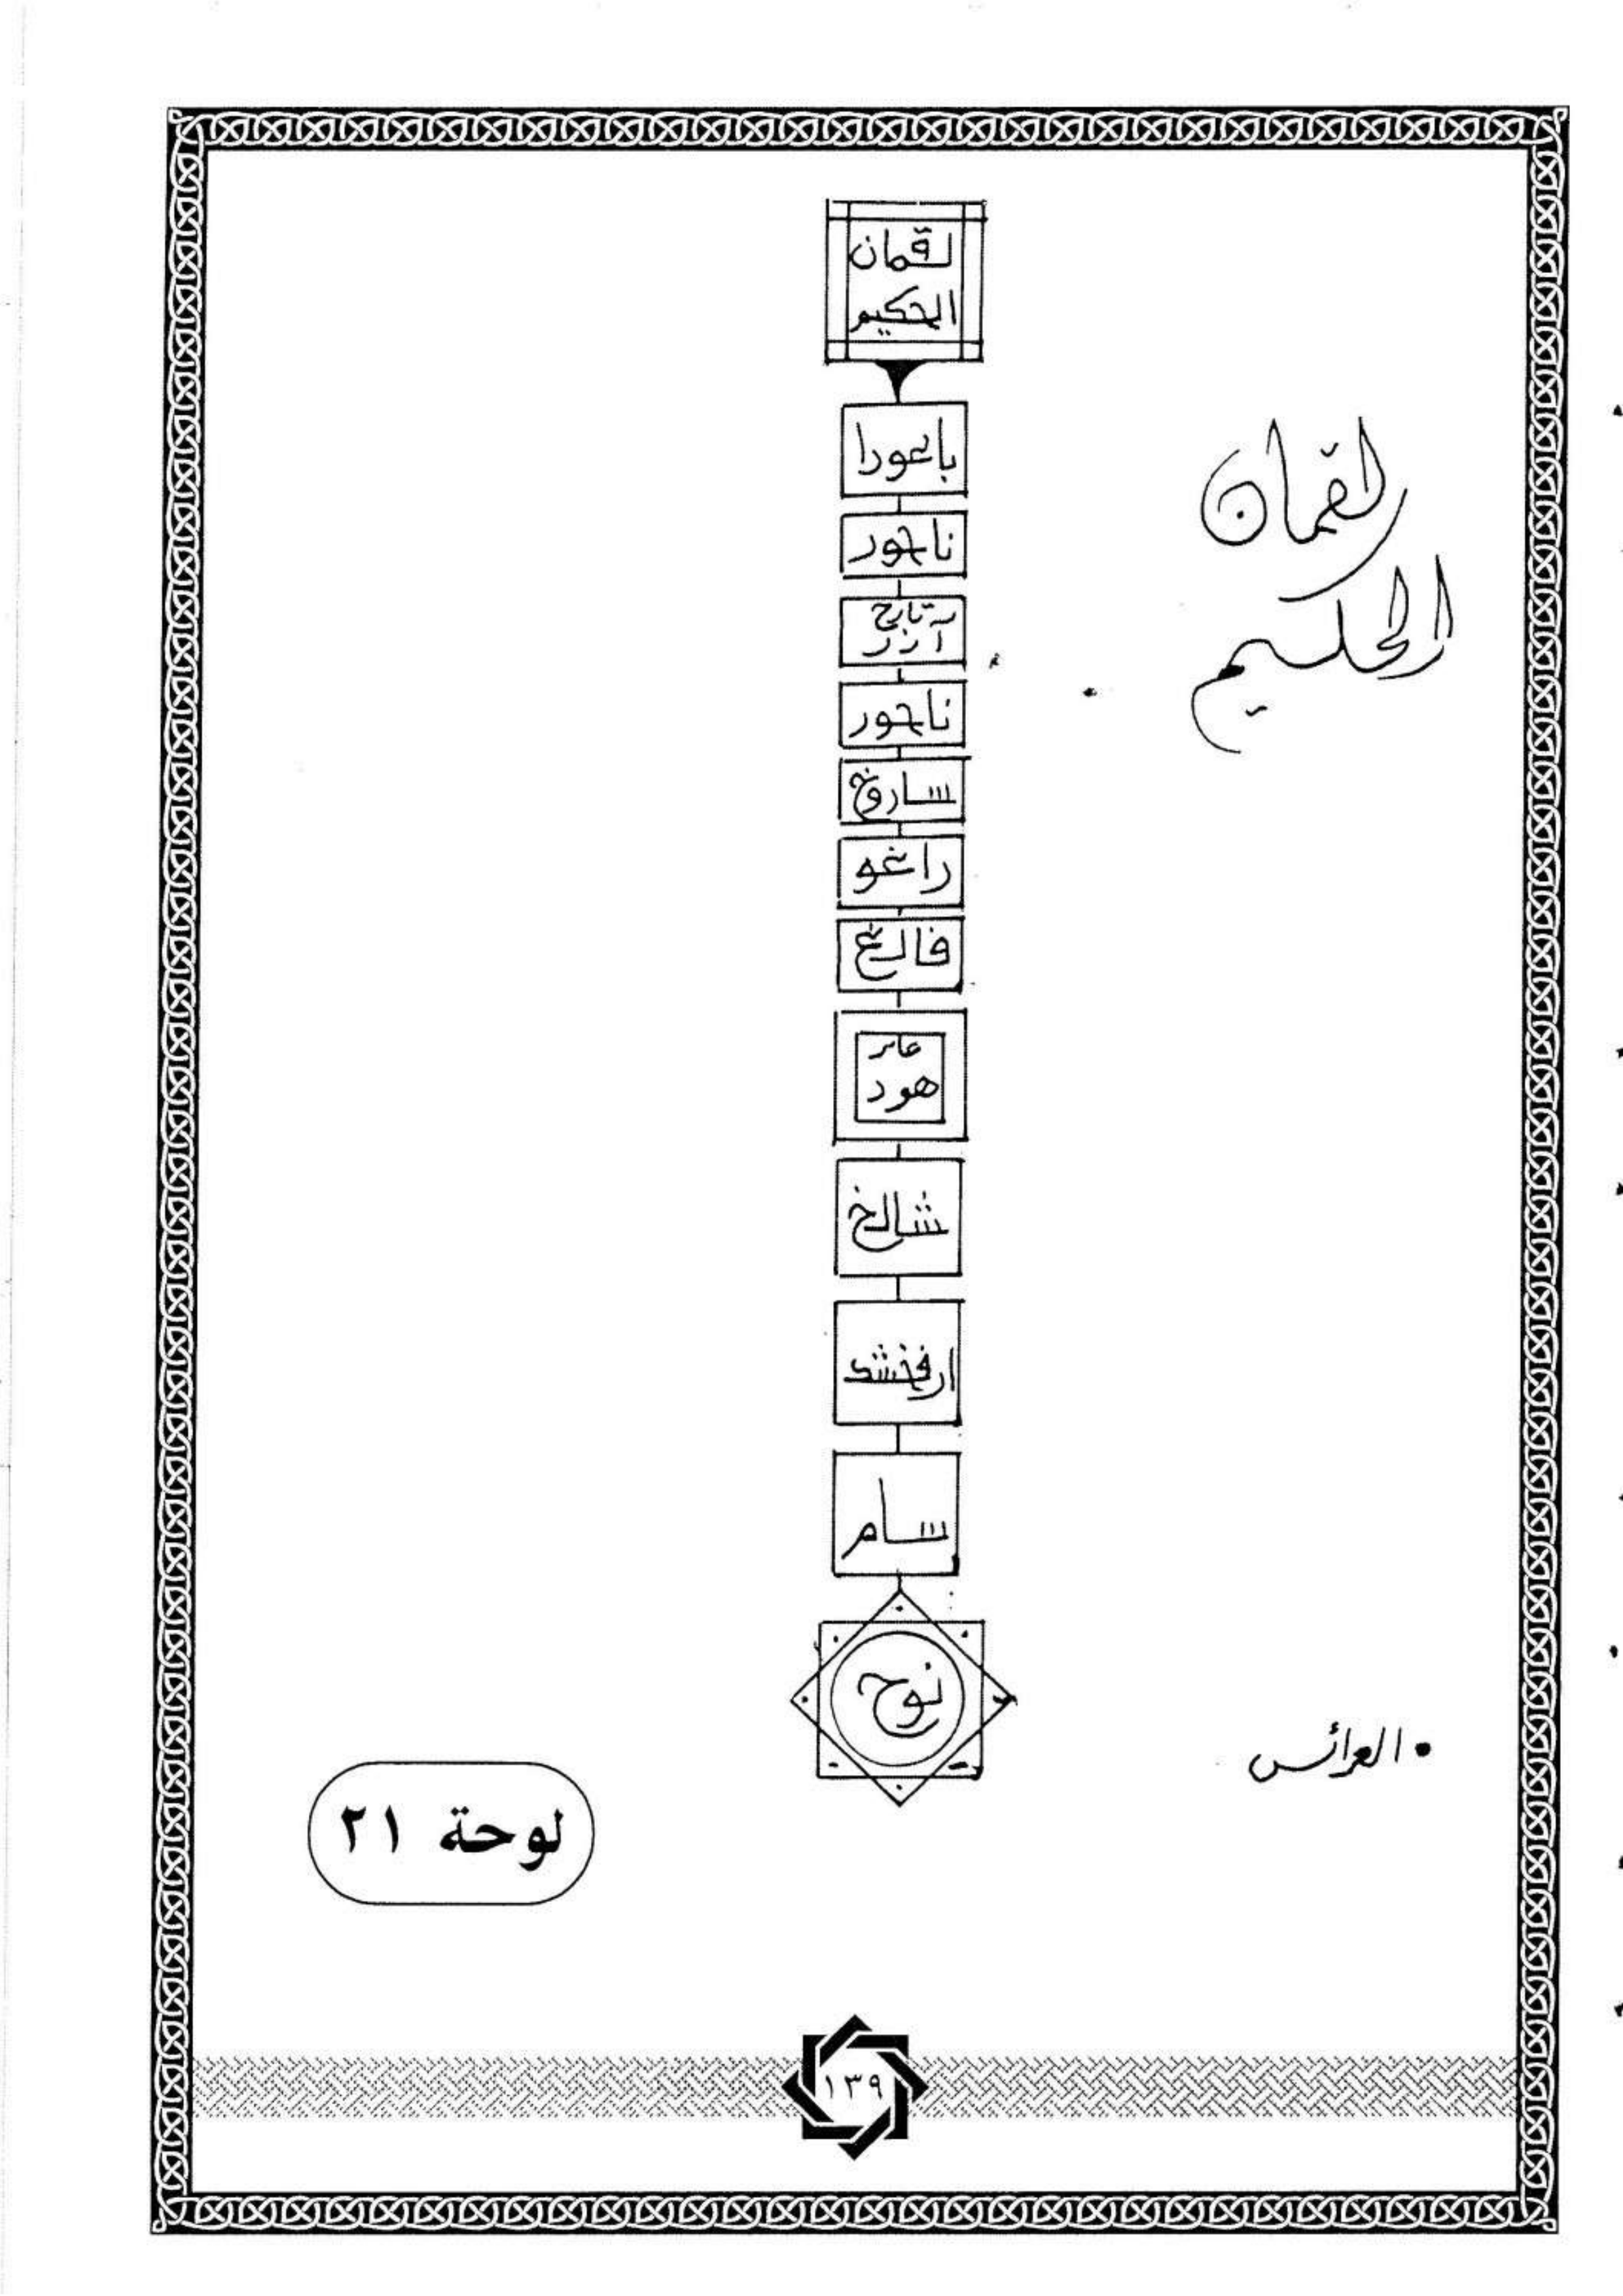 لقمان
الحكيم
لقمان
الحكيم
باعورا
ناحور
تارح
آزر
ناحور
ساروخ
راغو
فالغ
عابر
هود
شالخ
ارفخشد
سام
نوح
• العرائس
لوحة ٢١
١٣٩